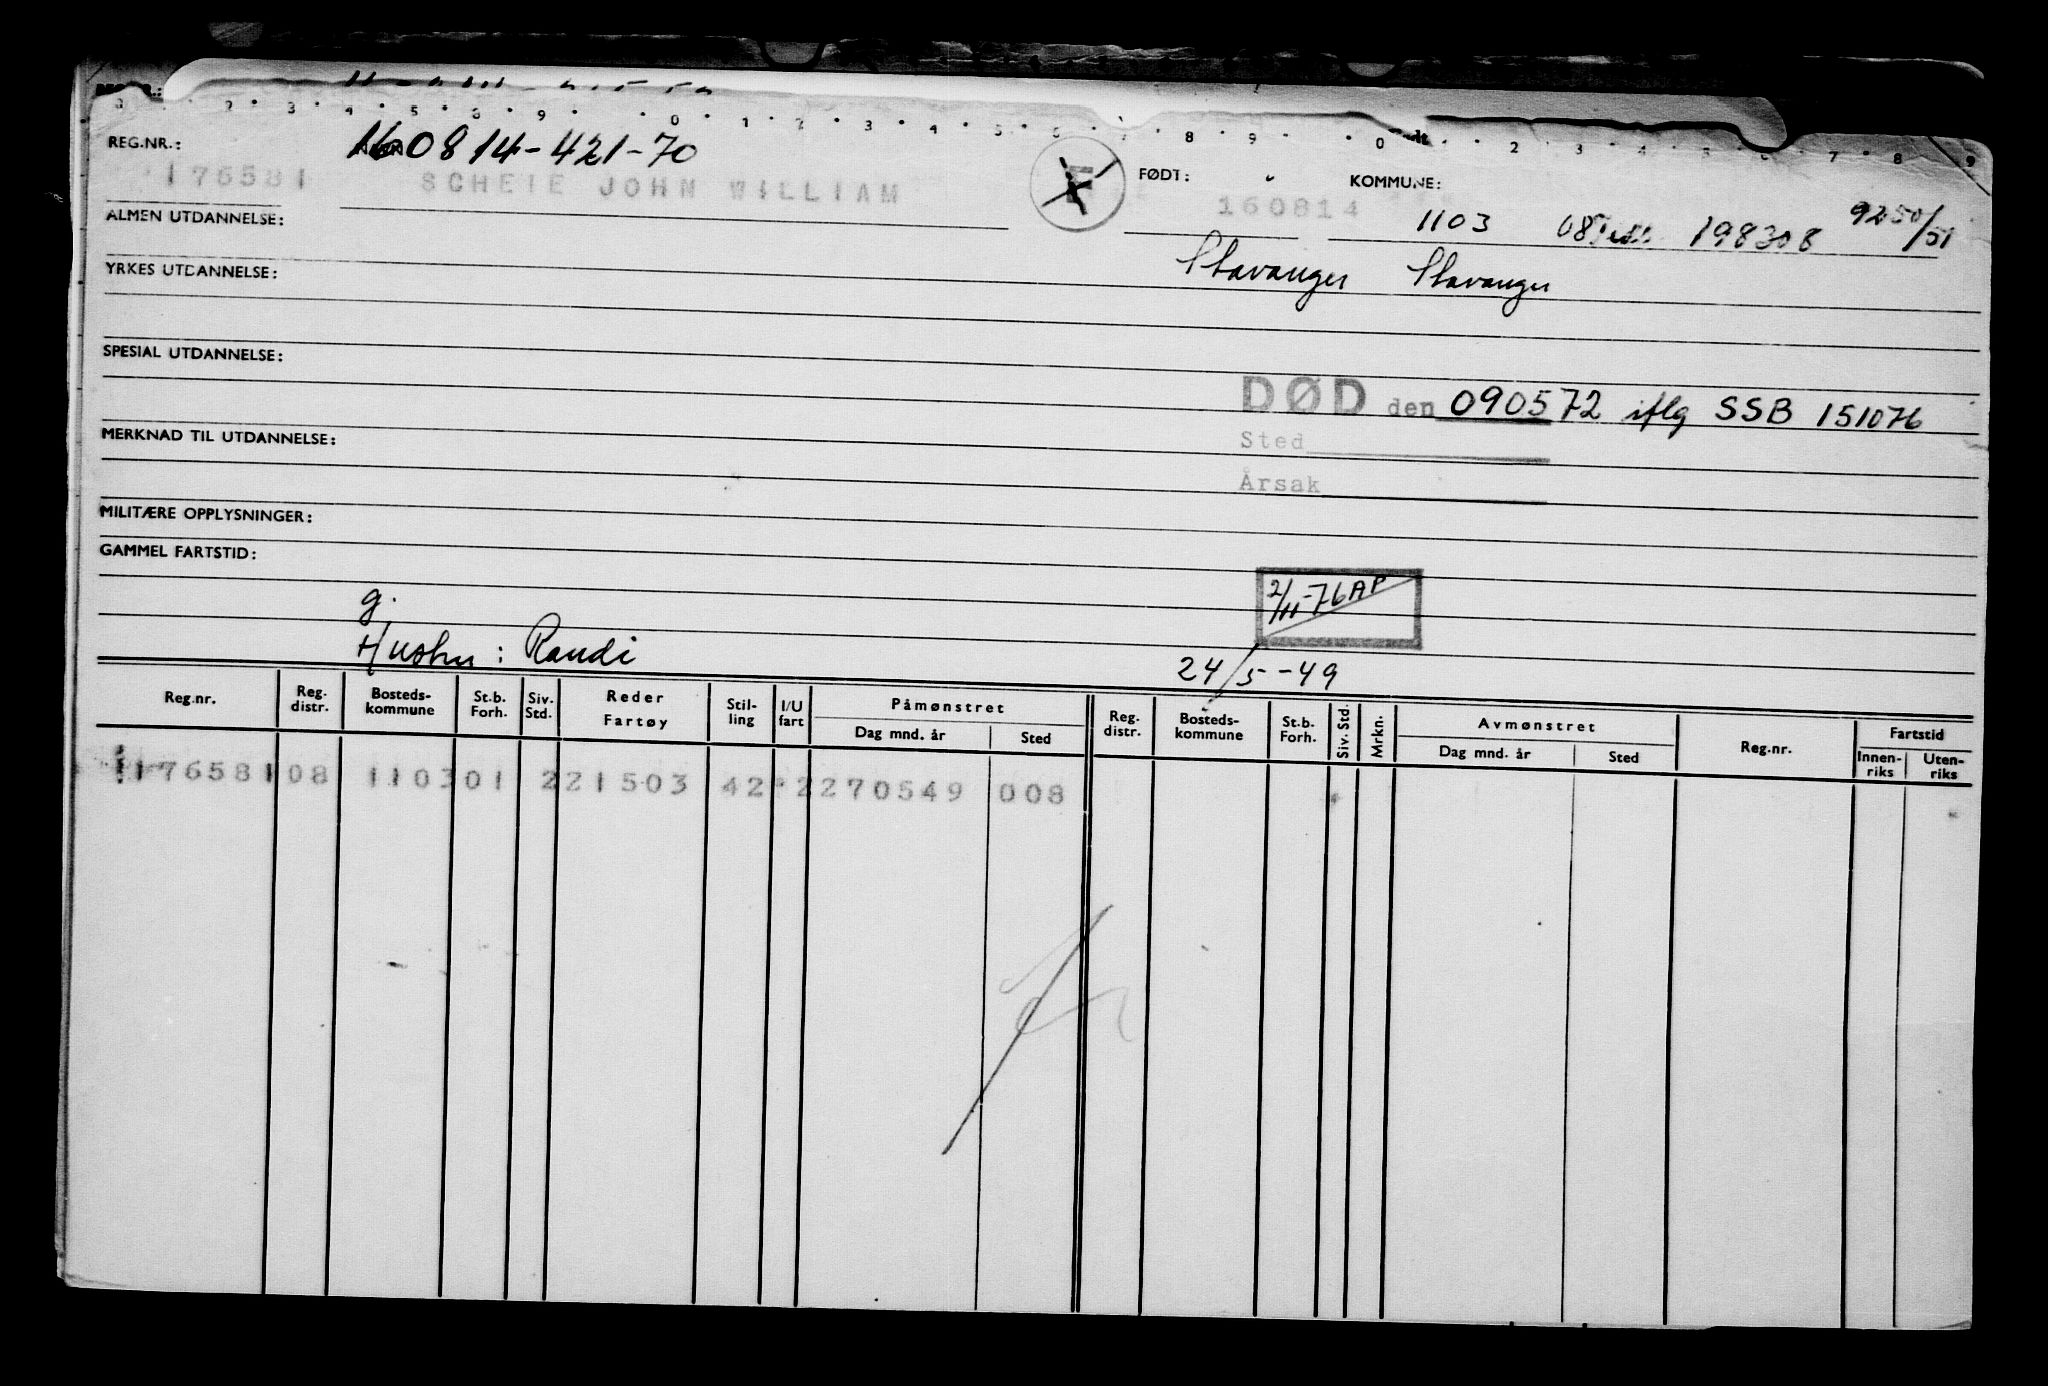 REG.NR.: 160814-421-70
176581 SCHEIE JOHN WILLIAM F FØDT: 160814 KOMMUNE: 1103 08 198308 9250/51
ALMEN UTDANNELSE:
Stavanger Stavanger
YRKES UTDANNELSE:
SPESIAL UTDANNELSE:
DØD den 090572 iflg SSB 151076
MERKNAD TIL UTDANNELSE:
Sted
Årsak
MILITÆRE OPPLYSNINGER:
GAMMEL FARTSTID:
2/11-76 AP
g.
Hustru: Randi
24/5-49
Reg.nr. Reg. distr. Bosteds-kommune St.b. Forh. Siv. Std. Reder Fartøy Stil-ling I/U fart Påmønstret Dag mnd. år Sted Reg. distr. Bosteds-kommune St.b. Forh. Siv. Std. Mrkn. Avmønstret Dag mnd. år Sted Reg.nr. Fartstid Innen-riks Uten-riks
176581 08 1103 01 2 21503 42 2 270549 008